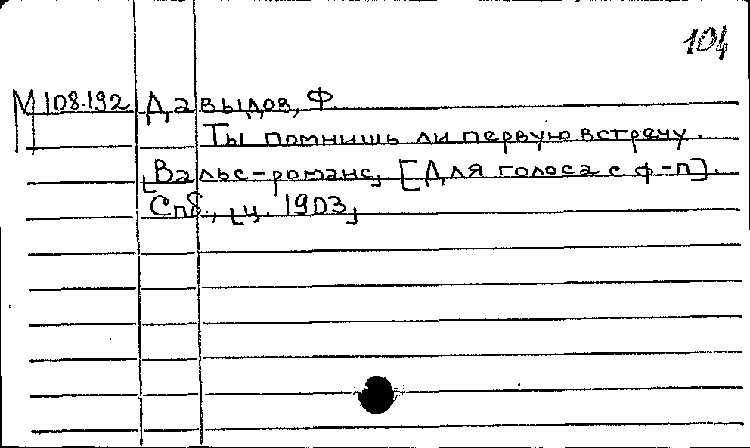 104
М 108.192 Давыдов, Ф.
Ты помнишь ли первую встречу.
[Вальс-романс] [Для голоса с ф-п].
Спб., [ц. 1903]